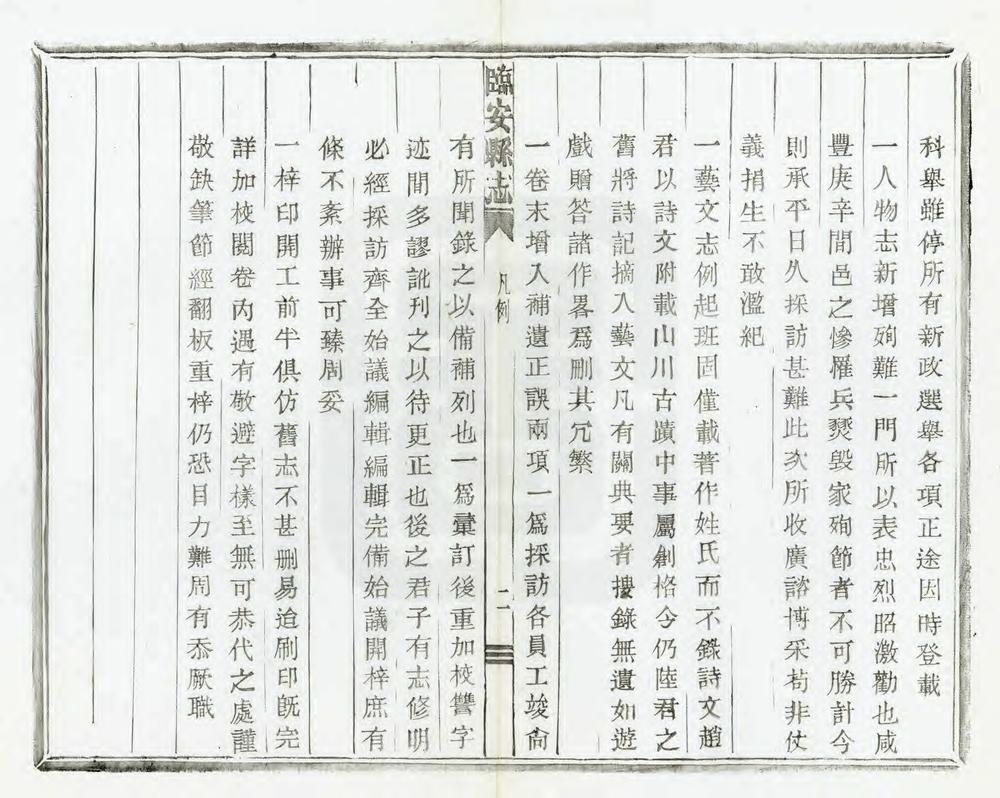 科舉雖停所有新政選舉各項正途因時登載
一人物志新增殉難一門所以表忠烈昭激勸也咸
豐庚辛間邑之慘罹兵燹毀家殉節者不可勝計今
則承平日久採訪甚難此次所收廣諮博采苟非仗
義捐生不敢濫紀
一藝文志例起班固僅載著作姓氏而不錄詩文趙
君以詩文附載山川古蹟中事屬創格今仍陸君之
舊將詩記摘入藝文凡有關典要者摟錄無遺如遊
戲贈答諸作畧爲刪其冗繁
一卷末增入補遺正誤兩項一爲採訪各員工竣尙
臨安縣志
凡例
二
有所聞錄之以備補列也一爲彚訂後重加校讐字
迹間多謬訛刊之以待更正也後之君子有志修明
必經採訪齊全始議編輯編輯完備始議開梓庶有
條不紊辦事可臻周妥
一梓印開工前半俱仿舊志不甚刪易迨刷印旣完
詳加校閱卷內遇有敬避字樣至無可恭代之處謹
敬缺筆節經翻板重梓仍恐目力難周有忝厥職